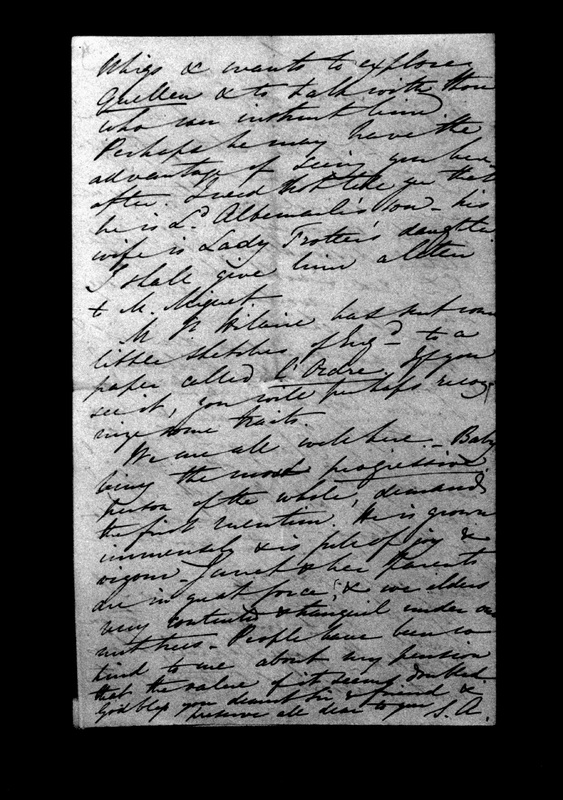 Whigs & wants to explore
Quellen & to talk with those
who can instruct him
Perhaps he may have the
advantage of seeing you here-
after. I need not tell you that
he is Ld. Albemarle's son - his
wife is Lady Trotter's daughter
I shall give him a letter
to M. Mignet.
M St Hilaire has sent some
little sketches of Engd. to a
paper called L'Ordre. If you
see it, you will perhaps recog
nize some traits.
We are all well here - Baby
being the most progressive
person of the whole, demands
the first mention. He is grown
immensely & is full of joy &
vigour - Janet & her Parents
are in great force, & we elders
very contented & tranquil under our
nut trees - People have been so
kind to me about my pension
that the value of it seems doubled.
God bless you dearest Sir & friend &
preserve all dear to you S. A.